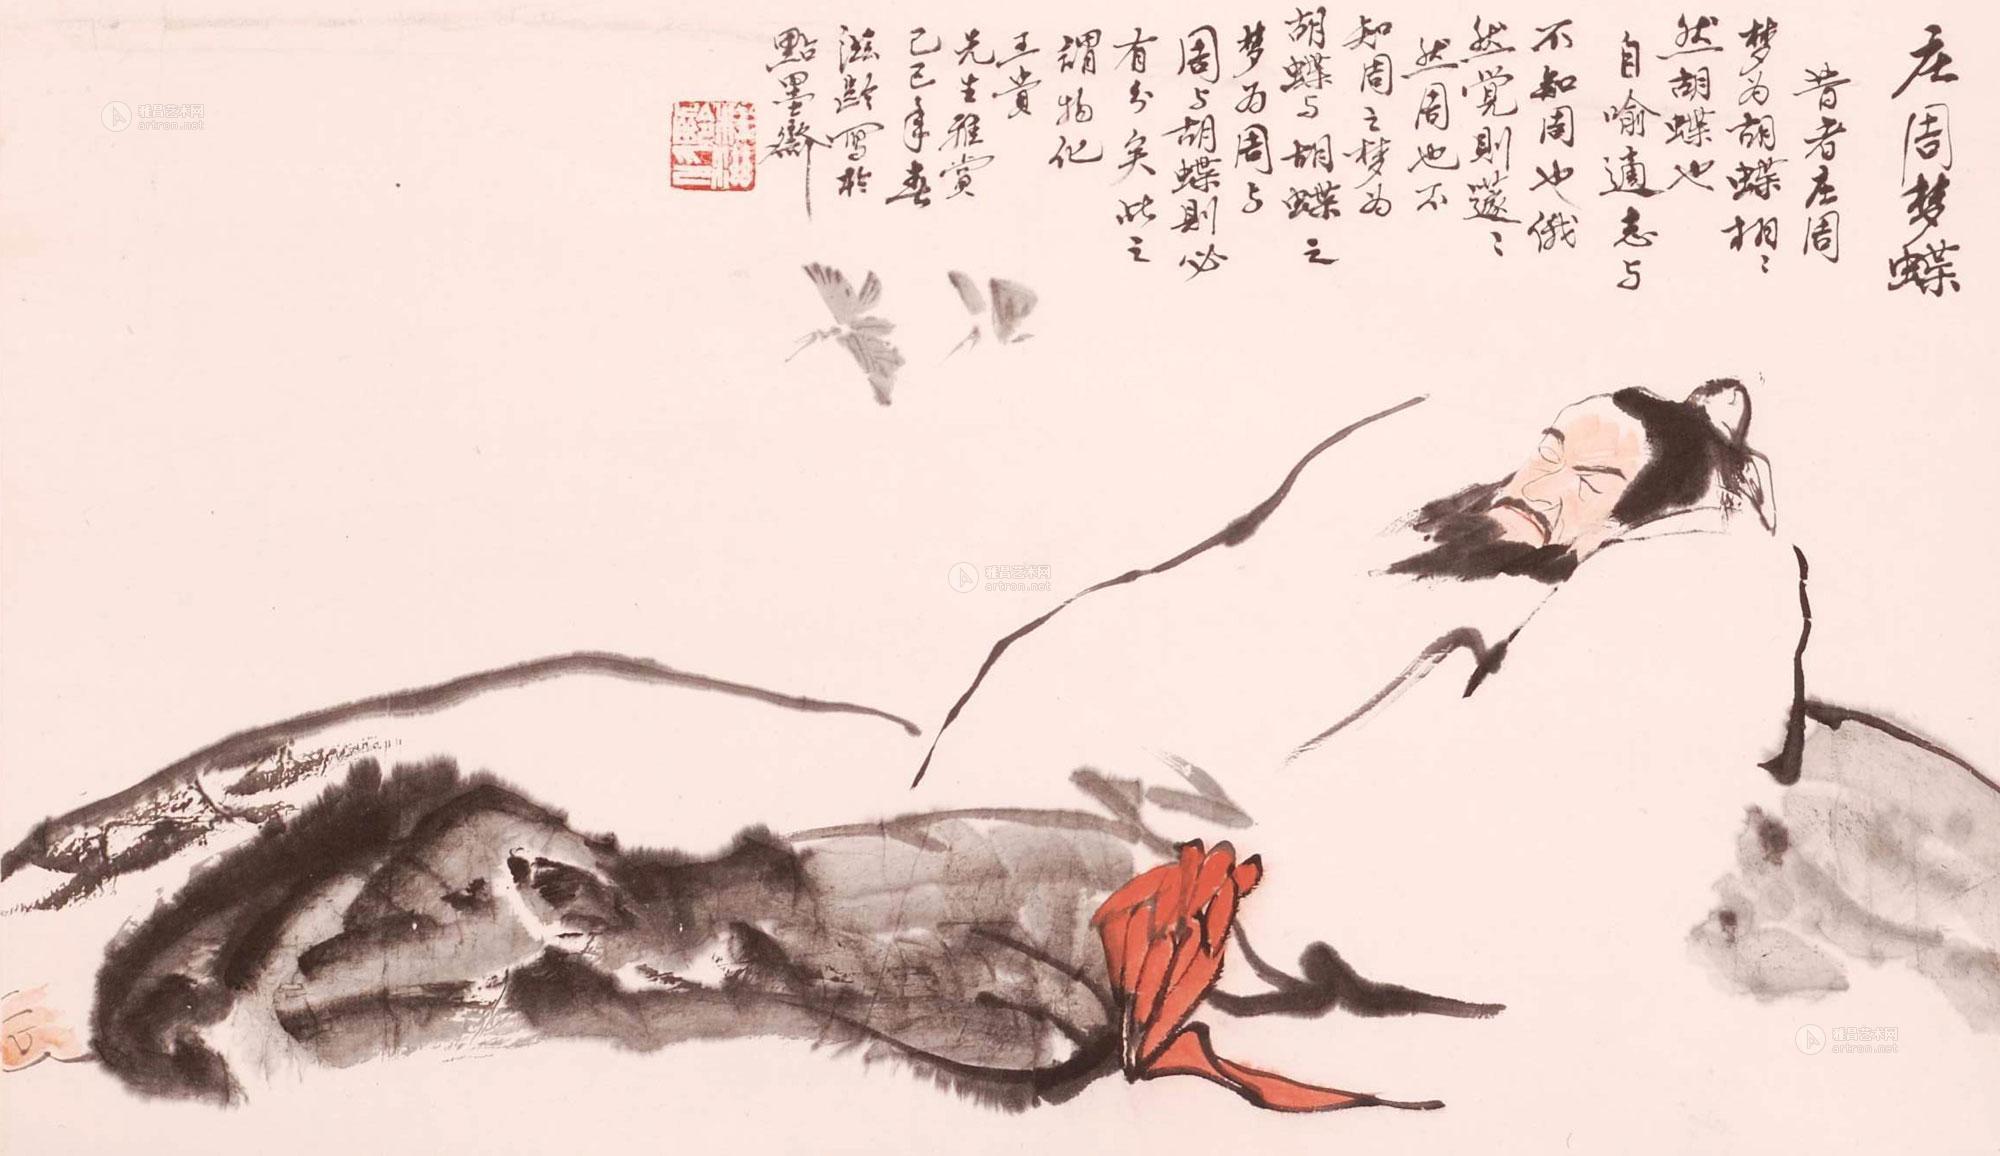 庄周梦蝶
昔者庄周
梦为胡蝶栩〻
然胡蝶也
自喻适志与
不知周也俄
然觉则蘧〻
然周也不
知周之梦为
胡蝶与胡蝶之
梦为周与
周与胡蝶则必
有分矣此之
谓物化
王赏
先生雅赏
己巳年春
滋龄写於
點墨斋
雅昌艺术网
artron.net
雅昌艺术网
artron.net
雅昌艺术网
artron.net